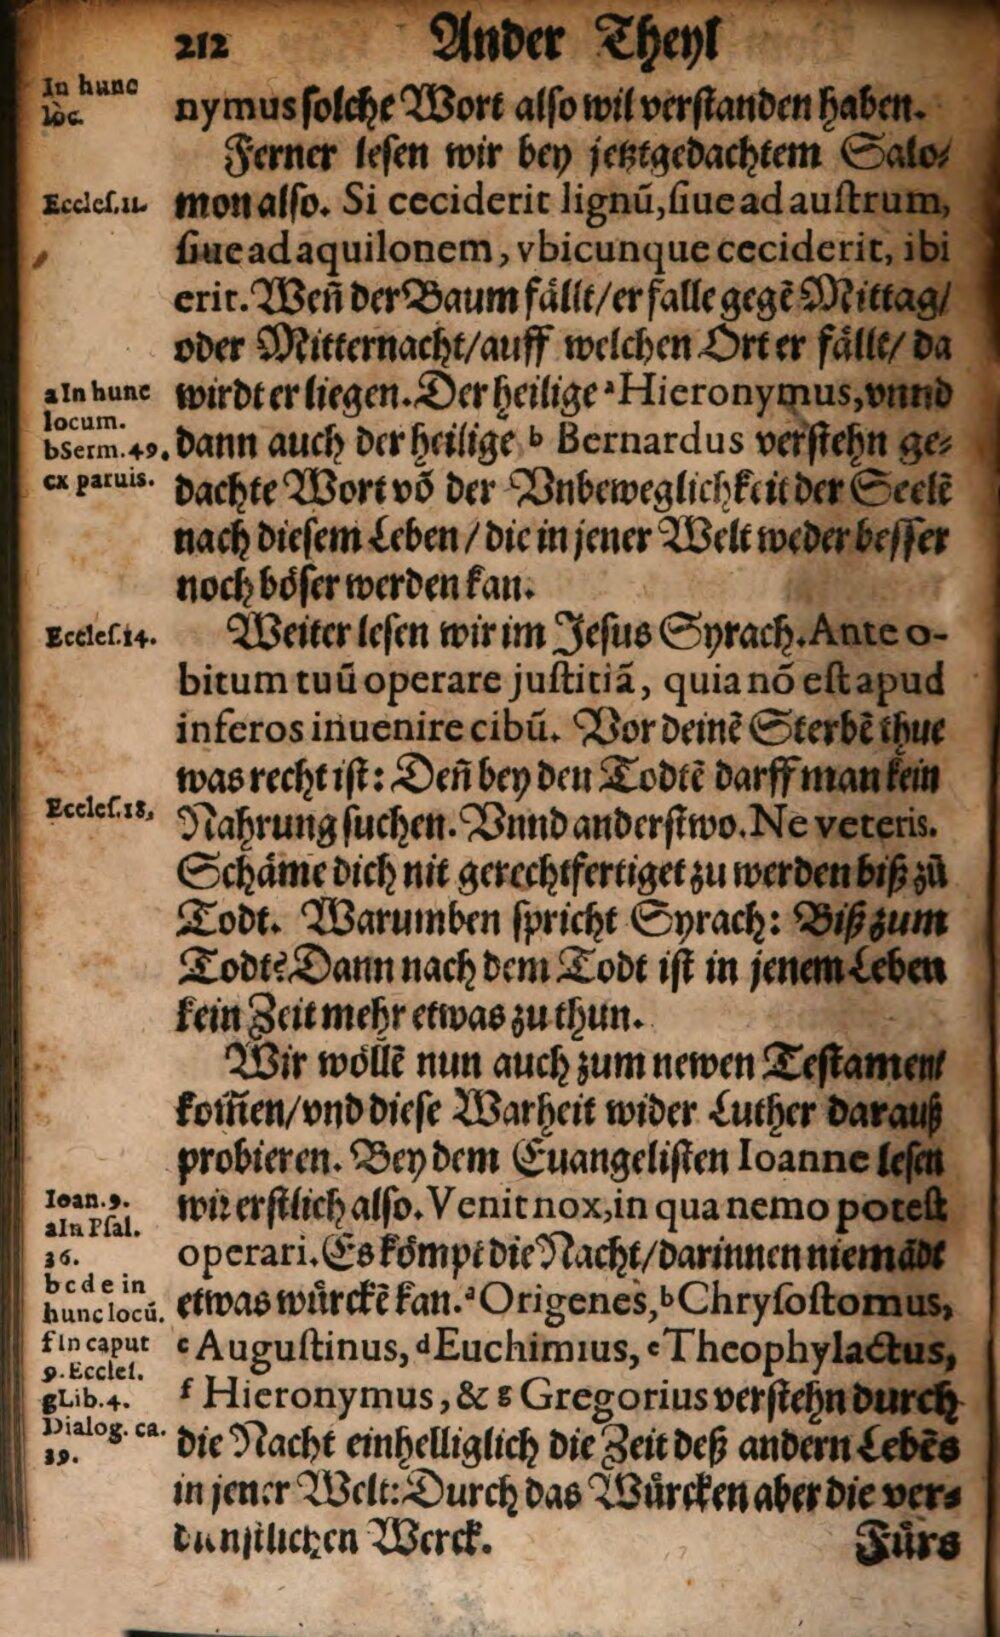 212 Ander Theyl
In hunc
loc.
nymus solche Wort also wil verstanden haben.
Ferner lesen wir bey jetztgedachtem Salo⸗
Eccles.11.
mon also. Si ceciderit lignū, siue ad austrum,
siue ad aquilonem, vbicunque ceciderit, ibi
erit. Weñ der Baum fällt/ er falle gegē Mittag/
oder Mitternacht/ auff welchen Ort er fällt/ da
a In hunc
locum.
b Serm. 49.
ex paruis.
wirdt er liegen. Der heilige ᵃ Hieronymus, vnnd
dann auch der heilige ᵇ Bernardus verstehn ge⸗
dachte Wort vō der Vnbeweglichkeit der Seelē
nach diesem Leben / die in jener Welt weder besser
noch böser werden kan.
Eccles.14.
Weiter lesen wir im Jesus Syrach. Ante o-
bitum tuū operare justitiā, quia nō est apud
inferos inuenire cibū. Vor deinē Sterbē thue
was recht ist: Deñ bey den Todtē darff man kein
Eccles.18,
Nahrung suchen. Vnnd anderstwo. Ne veteris.
Schäme dich nit gerechtfertiget zu werden biß zū
Todt. Warumben spricht Syrach: Biß zum
Todt? Dann nach dem Todt ist in jenem Leben
kein Zeit mehr etwas zu thun.
Wir wöllē nun auch zum newen Testament
kom̃en/ vnd diese Warheit wider Luther darauß
probieren. Bey dem Euangelisten Ioanne lesen
Ioan.9.
a In Psal.
36.
b c d e in
hunc locū.
f In caput
9. Eccles.
g Lib. 4.
Dialog. ca.
39.
wir erstlich also. Venit nox, in qua nemo potest
operari. Es kömpt die Nacht/ darinnen niemādt
etwas würckē kan. ᵃ Origenes, ᵇ Chrysostomus,
ᶜ Augustinus, ᵈ Euchimius, ᵉ Theophylactus,
ᶠ Hieronymus, & ᵍ Gregorius verstehn durch
die Nacht einhelliglich die Zeit deß andern Lebēs
in jener Welt: Durch das Würcken aber die ver⸗
dienstlichen Werck.
Fürs